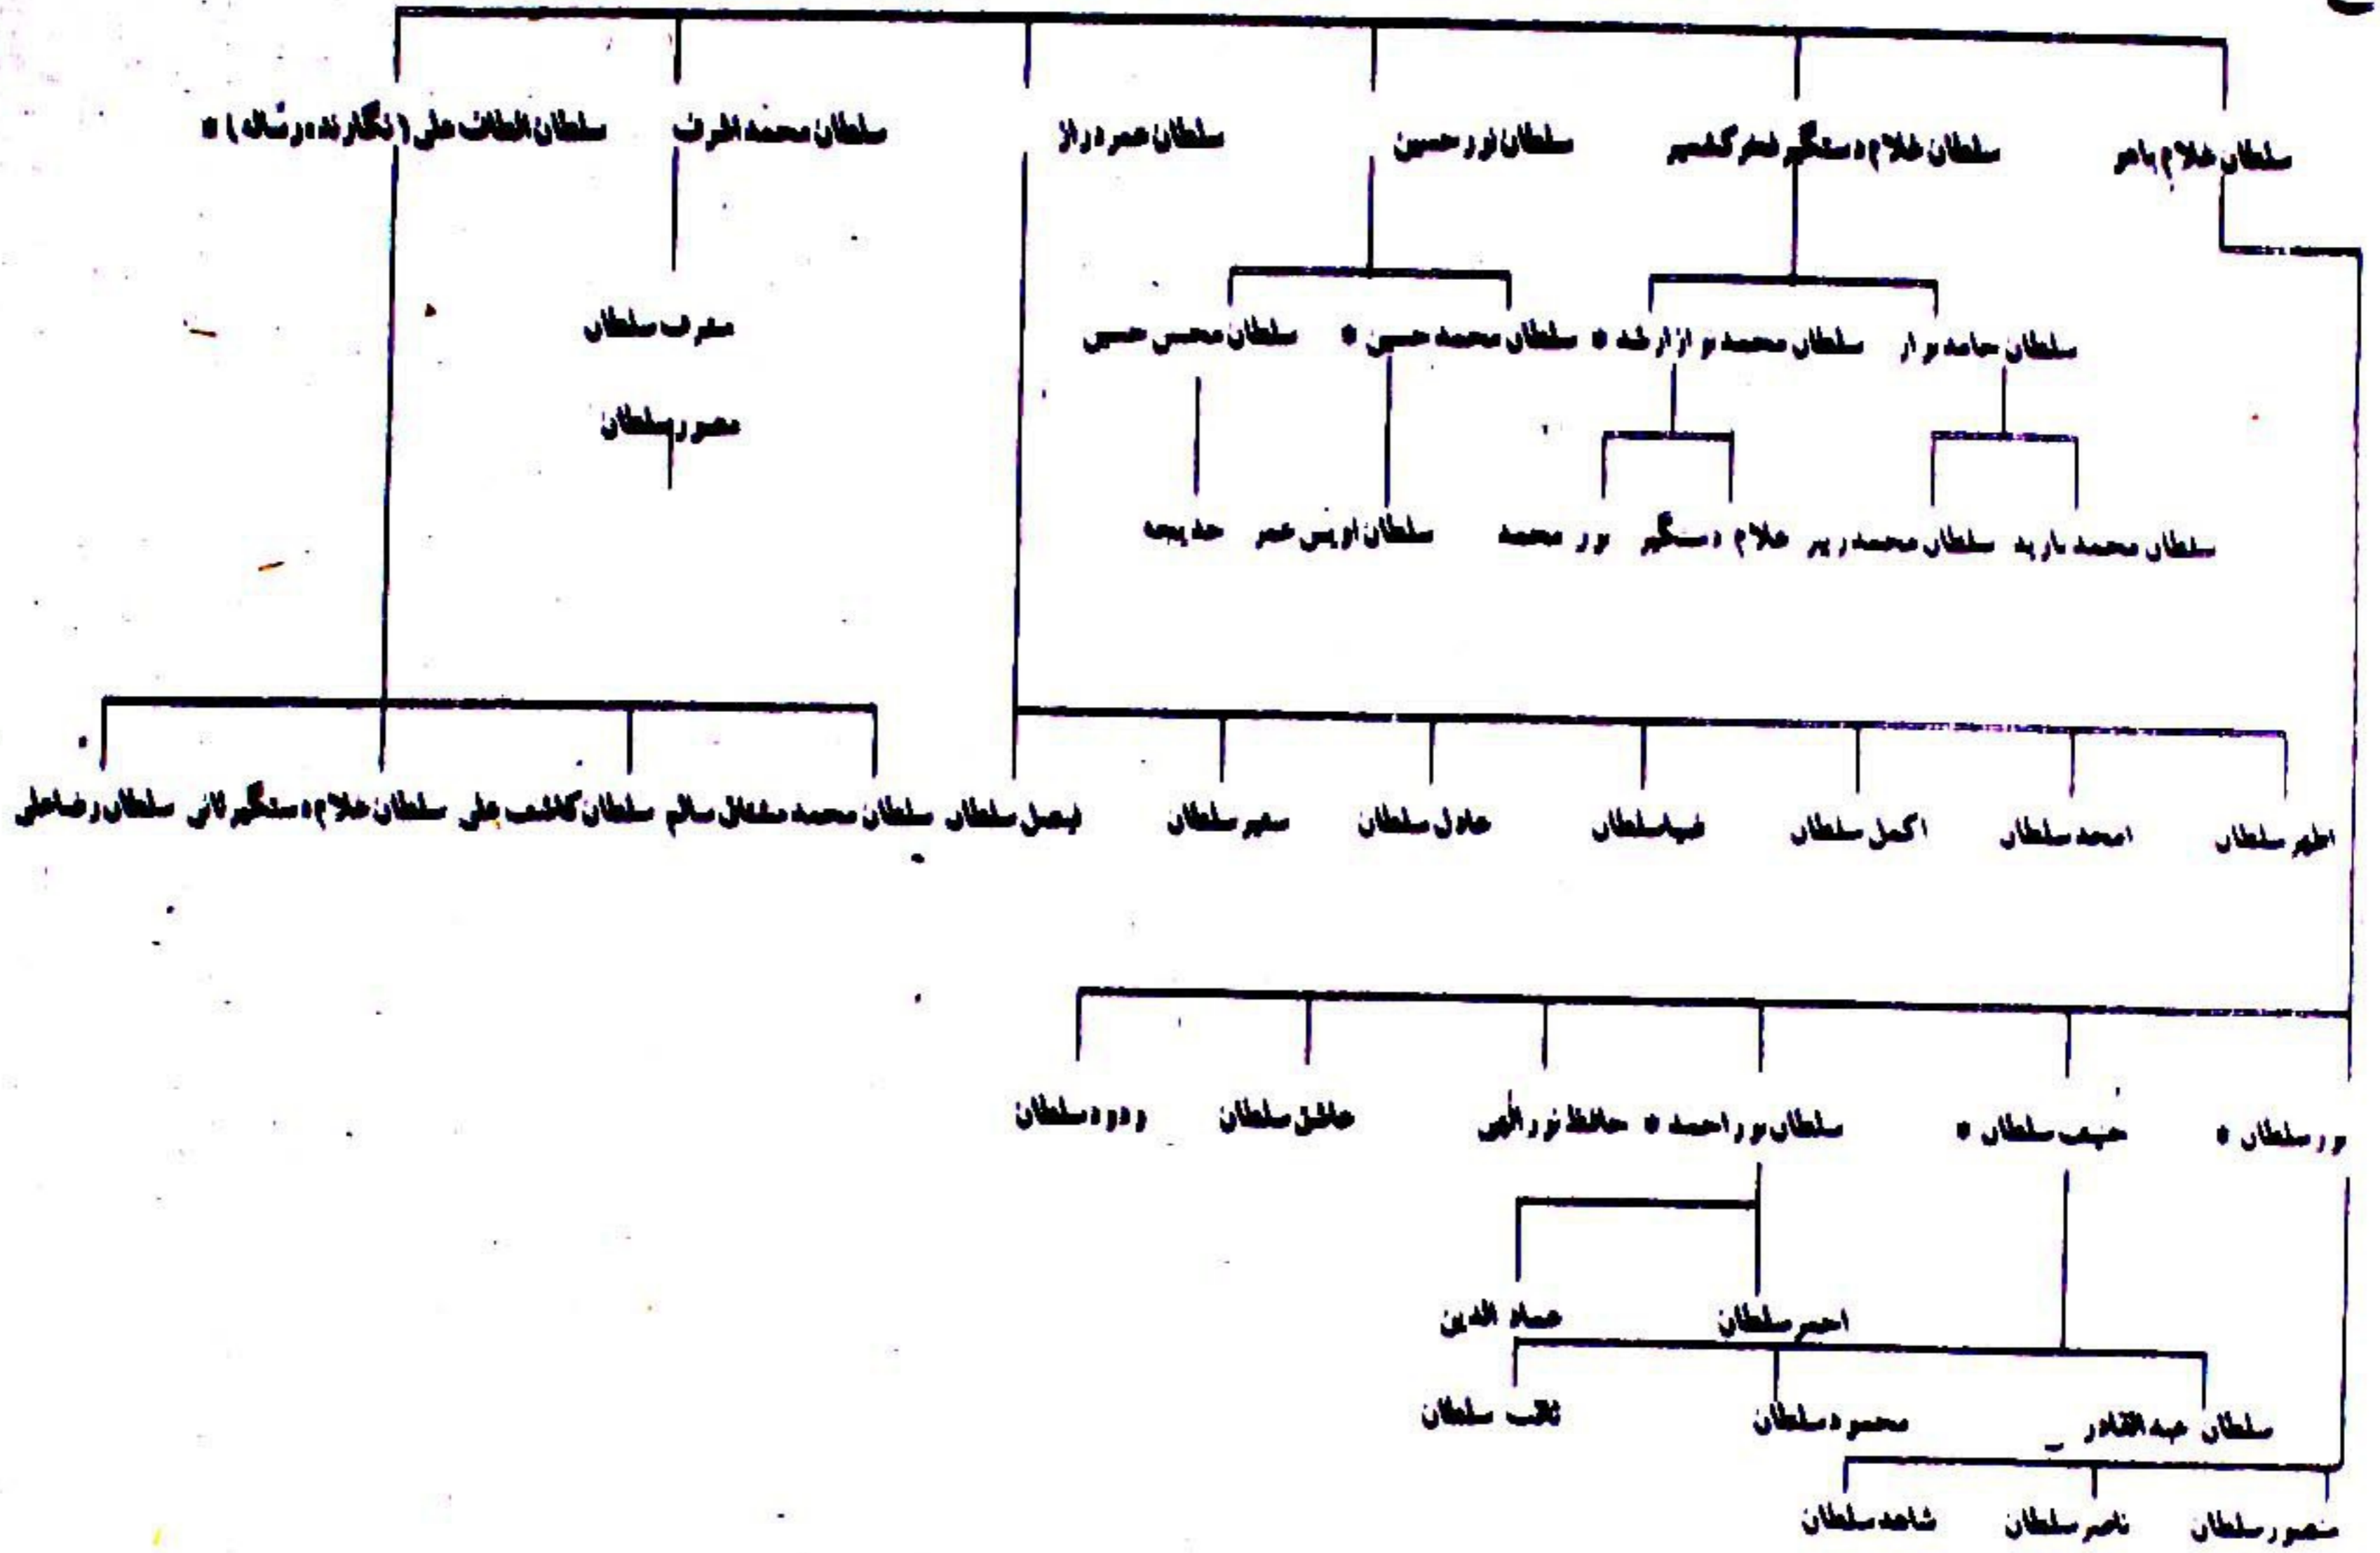 سلطان غلام باهو سلطان غلام دستگیر سلطان نور حسین سلطان عمر دراز سلطان محمد اشرف سلطان الطاف علی (نگارنده رساله) *
سلطان حامد نواز سلطان محمد نواز ارشد * سلطان محمد حسین * سلطان محسن حسین مشرف سلطان
مصور سلطان
سلطان محمد بازید سلطان محمد زبیر غلام دستگیر نور محمد سلطان اویس عمر خدیجه
اطهر سلطان امجد سلطان اکمل سلطان ضیا سلطان عادل سلطان سمیر سلطان فیصل سلطان سلطان محمد مشتاق سالم سلطان کاشف علی سلطان غلام دستگیر ثانی سلطان رضا علی
نور سلطان * حبیب سلطان * سلطان نور احمد * حافظ نور الهی عاشق سلطان ودود سلطان
احمر سلطان عماد الدین
سلطان عبدالقادر محمود سلطان ثاقب سلطان
منصور سلطان ناصر سلطان شاهد سلطان